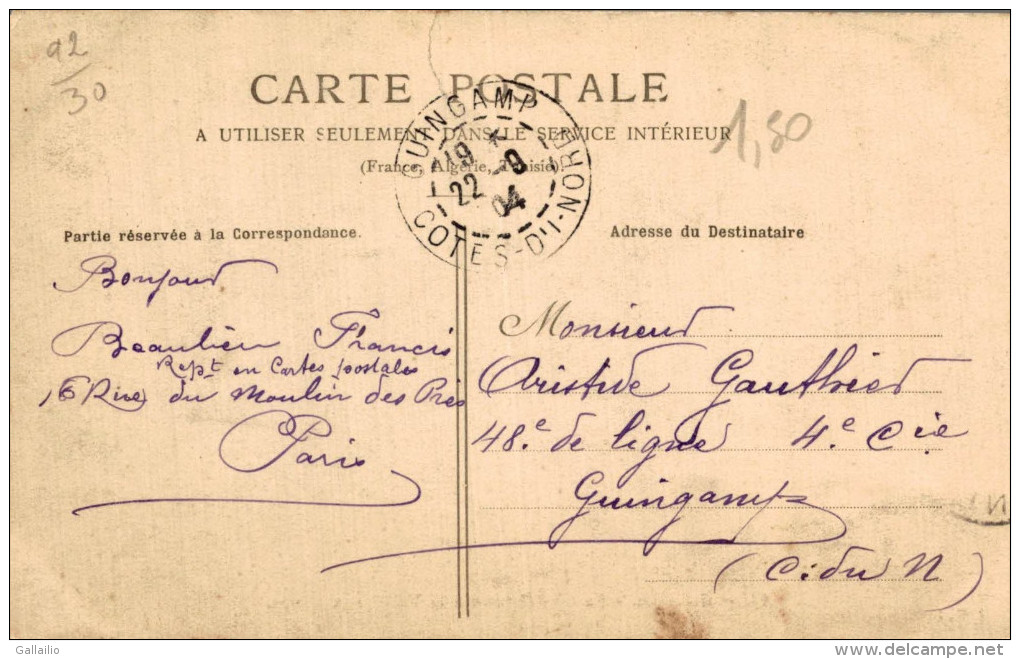 92
30
CARTE POSTALE
1,80
A UTILISER SEULEMENT DANS LE SERVICE INTÉRIEUR
(France, Algérie, Tunisie)
GUINGAMP
19 *
22 -9
04
COTES-D'I-NORD
Partie réservée à la Correspondance.
Bonjour
Beaulieu Francis
Rept en Cartes postales
16 Rue du Moulin des Prés
Paris
Adresse du Destinataire
Monsieur
Aristide Gauthier
48.e de ligne 4.e Cie
Guingamp
(C. du N)
Gallailio
delcampe.net